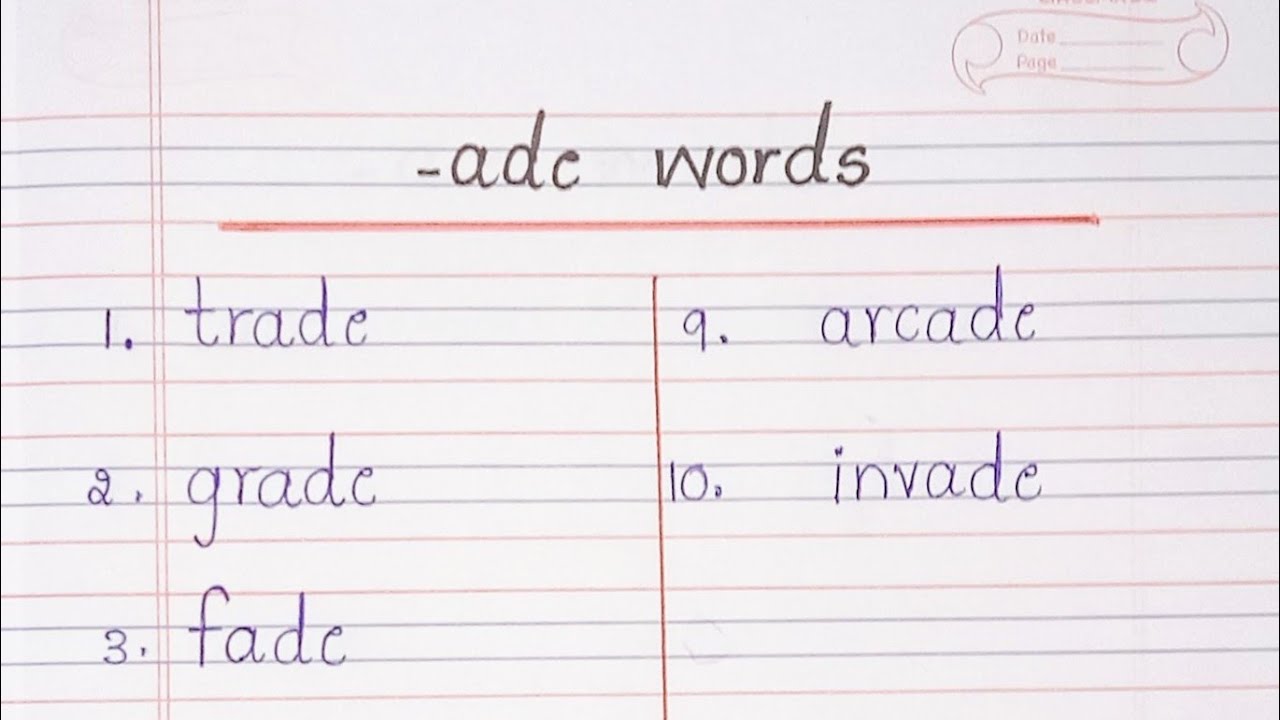 Date
Page
-ade words
1. trade
2. grade
3. fade
9. arcade
10. invade